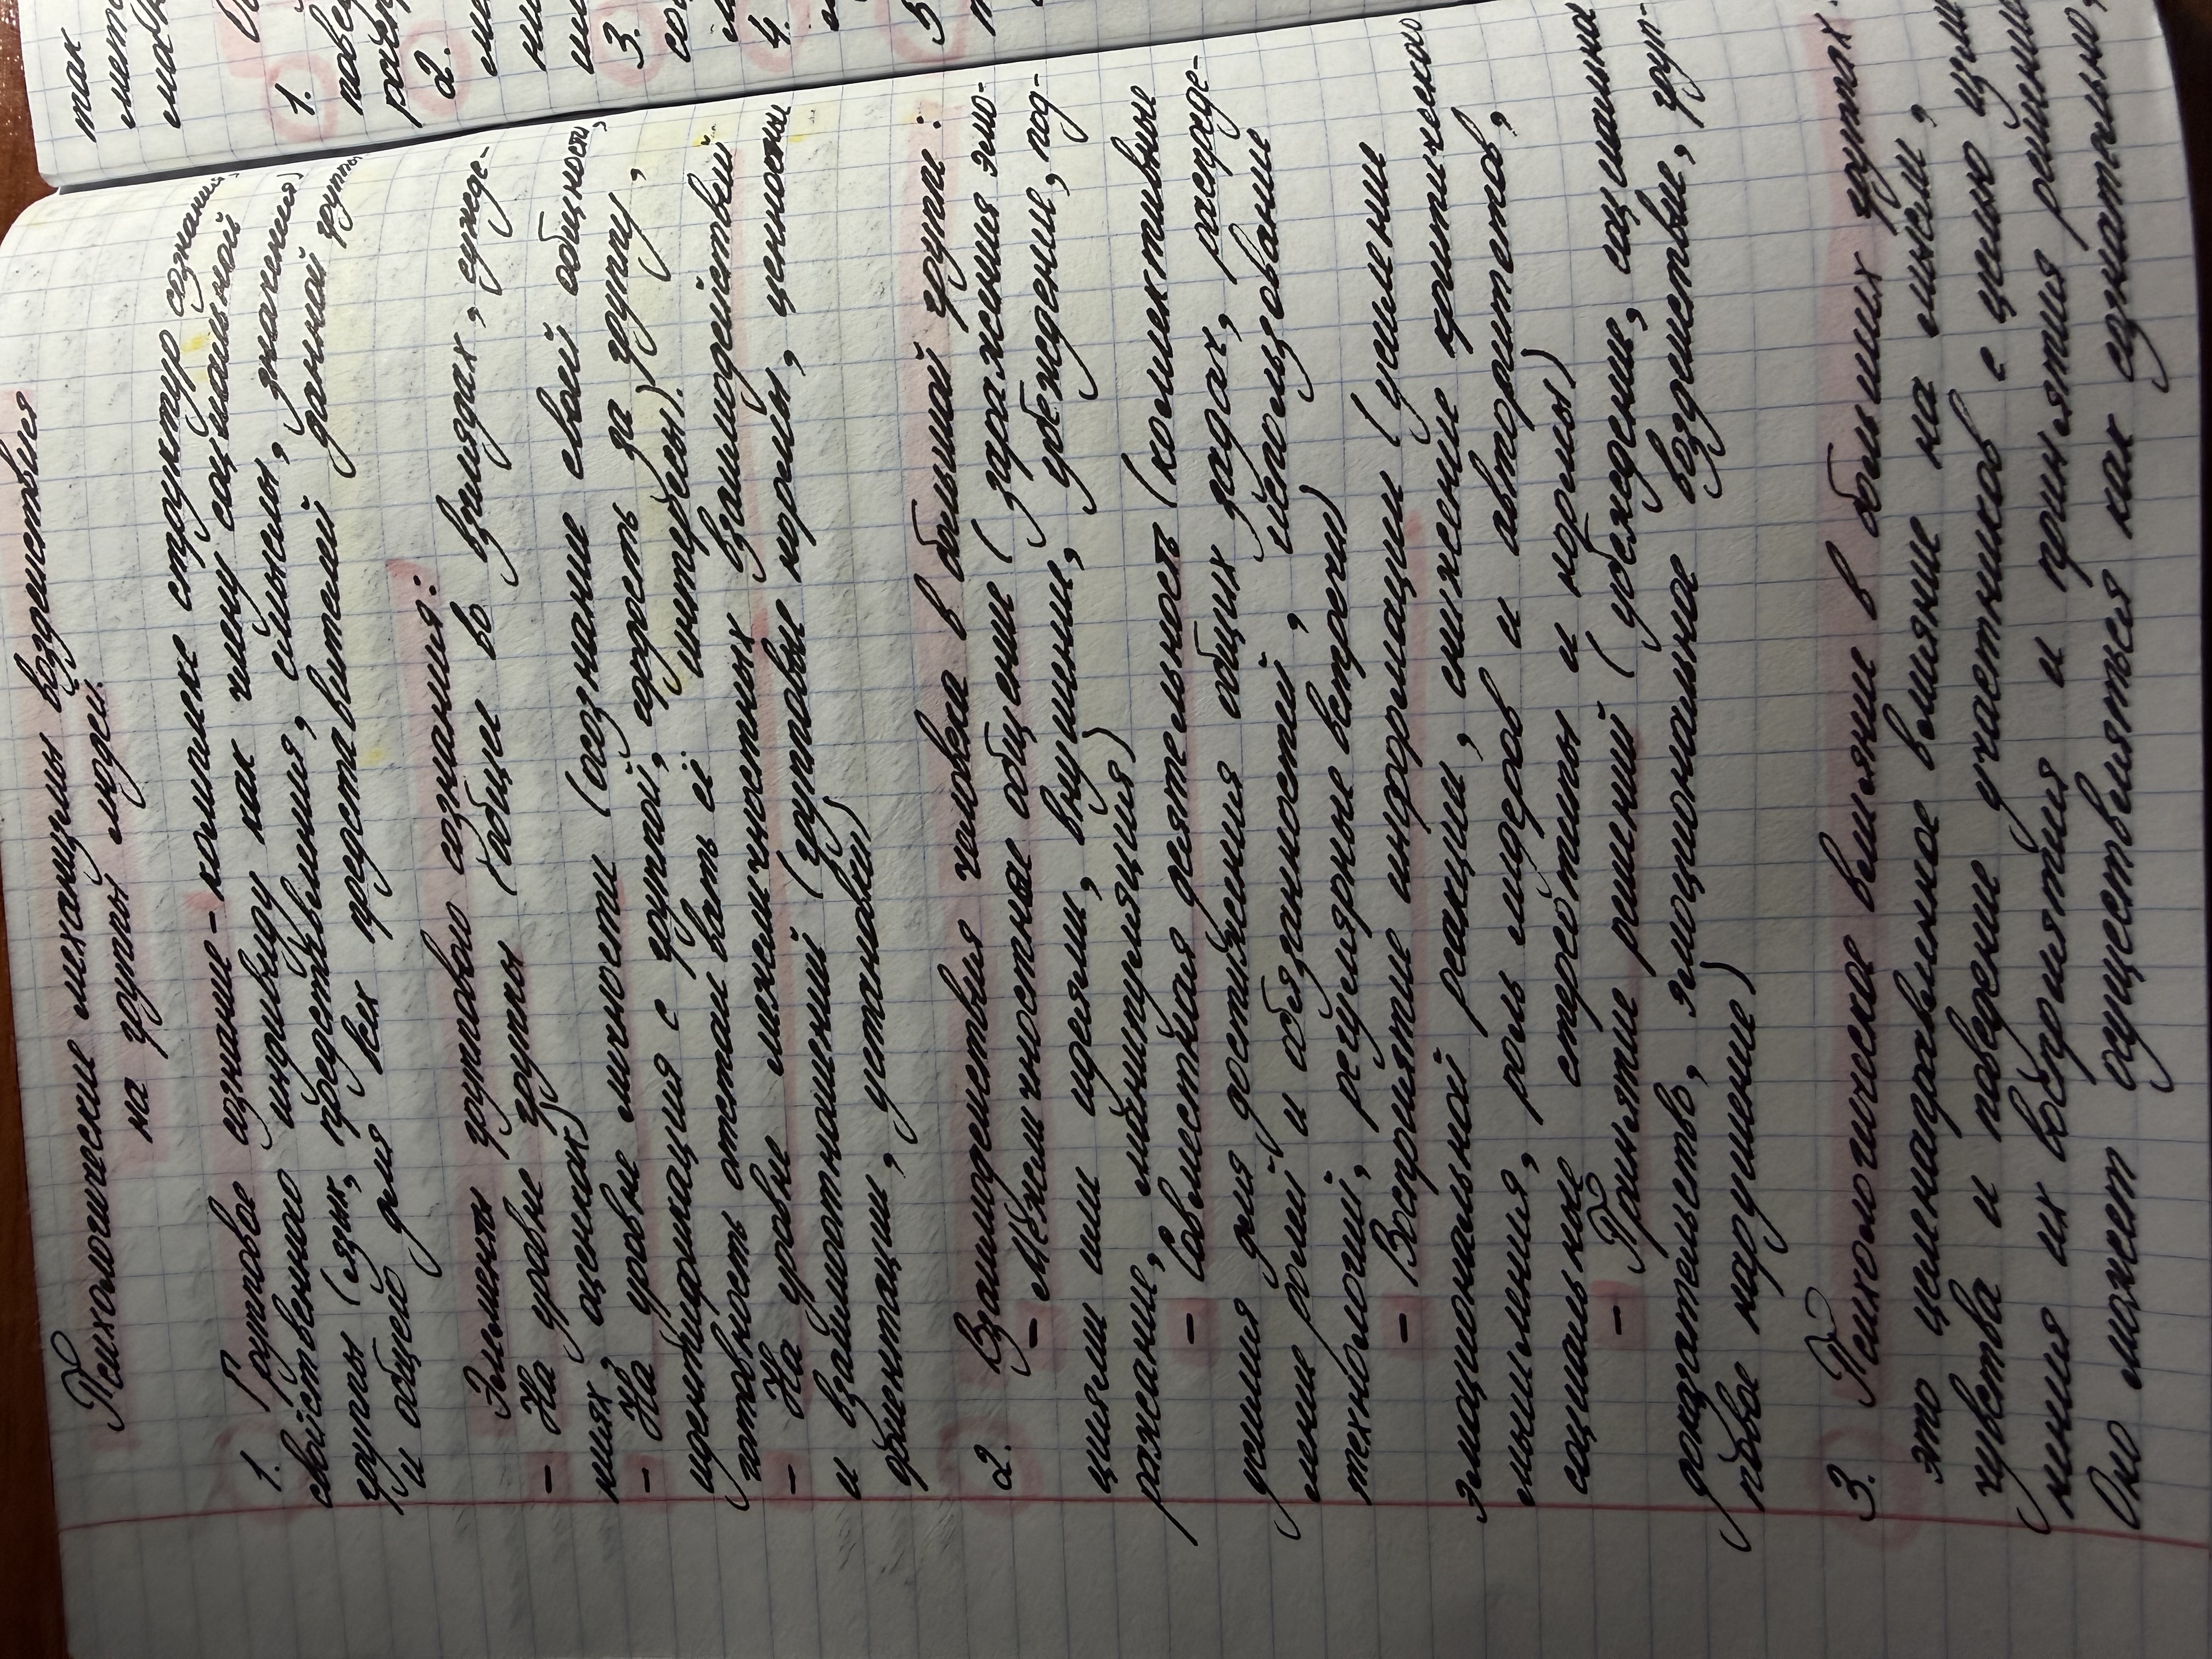 Психологические механизмы воздействия
на группы людей.
1. Групповое сознание - комплекс структур сознаний,
свойственного индивиду как члену социальной
группы (язык, представления, смыслы, значения)
и общей для всех представителей данной группы
Элементы группового сознания:
- На уровне группы (общее во взглядах, сужде-
ниях оценках)
- На уровне личности (осознание своей общности,
идентификация с группой, гордость за группу,
готовность отстаивать её интересы).
- На уровне межличностных взаимодействий
и взаимоотношений (групповые нормы, ценностные
ориентации, установки)
2. Взаимодействия человека в большой группе:
- Межличностные общение (заражения эмо-
циями или идеями, внушение, убеждение, под-
ражание, манипуляция)
- Совместная деятельность (коллективные
усилия для достижения общих задач, распреде-
ление ролей и обязанностей, использование
технологий, регулярные встречи)
- Восприятие информации (усиление
эмоциональной реакции, снижение критического
мышления, роль лидеров и авторитетов,
социальные стереотипы и нормы)
- Принятие решений (убеждение, социальна
доказательств, эмоциональное воздействие, груп-
повое нарушение)
3. Психологическое влияние в больших группах.
это целенаправленное влияние на мысли,
чувства и поведение участников с целью
ния их восприятия и принятия решении
Оно может осуществляться как сознательно,
так
1.
2.
3.
4.
5